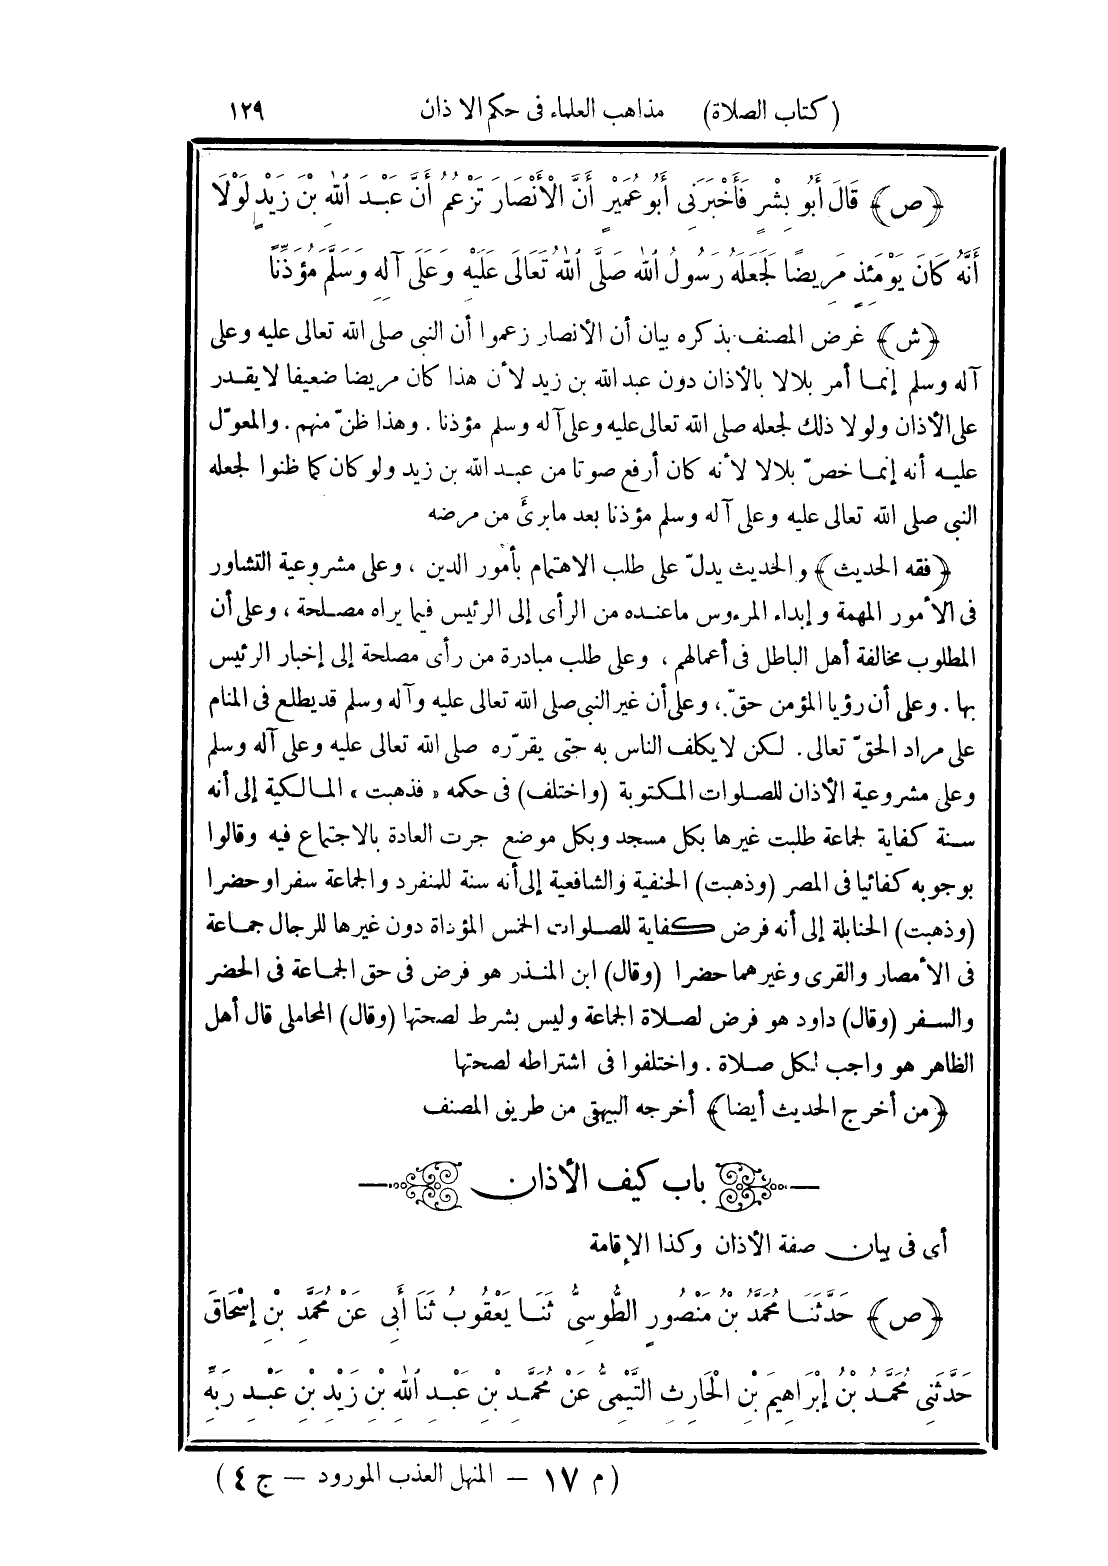 (كتاب الصلاة) مذاهب العلماء فى حكم الاذان ١٢٩
﴿ص﴾ قَالَ أَبُو بِشْرٍ فَأَخْبَرَنِى أَبُو عُمَيْرٍ أَنَّ الْأَنْصَارَ تَزْعُمُ أَنَّ عَبْدَ اللهِ بْنَ زَيْدٍ لَوْلَا
أَنَّهُ كَانَ يَوْمَئِذٍ مَرِيضًا لَجَعَلَهُ رَسُولُ اللهِ صَلَّى اللهُ تَعَالَى عَلَيْهِ وَعَلَى آلِهِ وَسَلَّمَ مُؤَذِّنًا
﴿ش﴾ غرض المصنف بذكره بيان أن الأنصار زعموا أن النبى صلى الله تعالى عليه وعلى
آله وسلم إنما أمر بلالا بالأذان دون عبد الله بن زيد لأن هذا كان مريضا ضعيفا لا يقدر
على الأذان ولولا ذلك لجعله صلى الله تعالى عليه وعلى آله وسلم مؤذنا . وهذا ظنّ منهم . والمعوّل
عليه أنه إنما خصّ بلالا لأنه كان أرفع صوتا من عبد الله بن زيد ولو كان كما ظنوا لجعله
النبى صلى الله تعالى عليه وعلى آله وسلم مؤذنا بعد ما برئ من مرضه
﴿فقه الحديث﴾ والحديث يدلّ على طلب الاهتمام بأمور الدين ، وعلى مشروعية التشاور
فى الأمور المهمة وإبداء المرءوس ماعنده من الرأى إلى الرئيس فيما يراه مصلحة ، وعلى أن
المطلوب مخالفة أهل الباطل فى أعمالهم ، وعلى طلب مبادرة من رأى مصلحة إلى إخبار الرئيس
بها . وعلى أن رؤيا المؤمن حقّ ، وعلى أن غير النبى صلى الله تعالى عليه وآله وسلم قد يطلع فى المنام
على مراد الحقّ تعالى . لكن لا يكلف الناس به حتى يقرّره صلى الله تعالى عليه وعلى آله وسلم
وعلى مشروعية الأذان للصلوات المكتوبة (واختلف) فى حكمه « فذهبت » المالكية إلى أنه
سنة كفاية لجماعة طلبت غيرها بكل مسجد وبكل موضع جرت العادة بالاجتماع فيه وقالوا
بوجوبه كفائيا فى المصر (وذهبت) الحنفية والشافعية إلى أنه سنة للمنفرد والجماعة سفرا وحضرا
(وذهبت) الحنابلة إلى أنه فرض كفاية للصلوات الخمس المؤداة دون غيرها للرجال جماعة
فى الأمصار والقرى وغيرهما حضرا (وقال) ابن المنذر هو فرض فى حق الجماعة فى الحضر
والسفر (وقال) داود هو فرض لصلاة الجماعة وليس بشرط لصحتها (وقال) المحاملى قال أهل
الظاهر هو واجب لكل صلاة . واختلفوا فى اشتراطه لصحتها
﴿من أخرج الحديث أيضا﴾ أخرجه البيهقى من طريق المصنف
باب كيف الأذان
أى فى بيان صفة الأذان وكذا الإقامة
﴿ص﴾ حَدَّثَنَا مُحَمَّدُ بْنُ مَنْصُورٍ الطُّوسِىُّ ثَنَا يَعْقُوبُ ثَنَا أَبِى عَنْ مُحَمَّدِ بْنِ إِسْحَاقَ
حَدَّثَنِى مُحَمَّدُ بْنُ إِبْرَاهِيمَ بْنِ الْحَارِثِ التَّيْمِىُّ عَنْ مُحَمَّدِ بْنِ عَبْدِ اللهِ بْنِ زَيْدِ بْنِ عَبْدِ رَبِّهِ
(م ١٧ – المنهل العذب المورود – ج ٤)